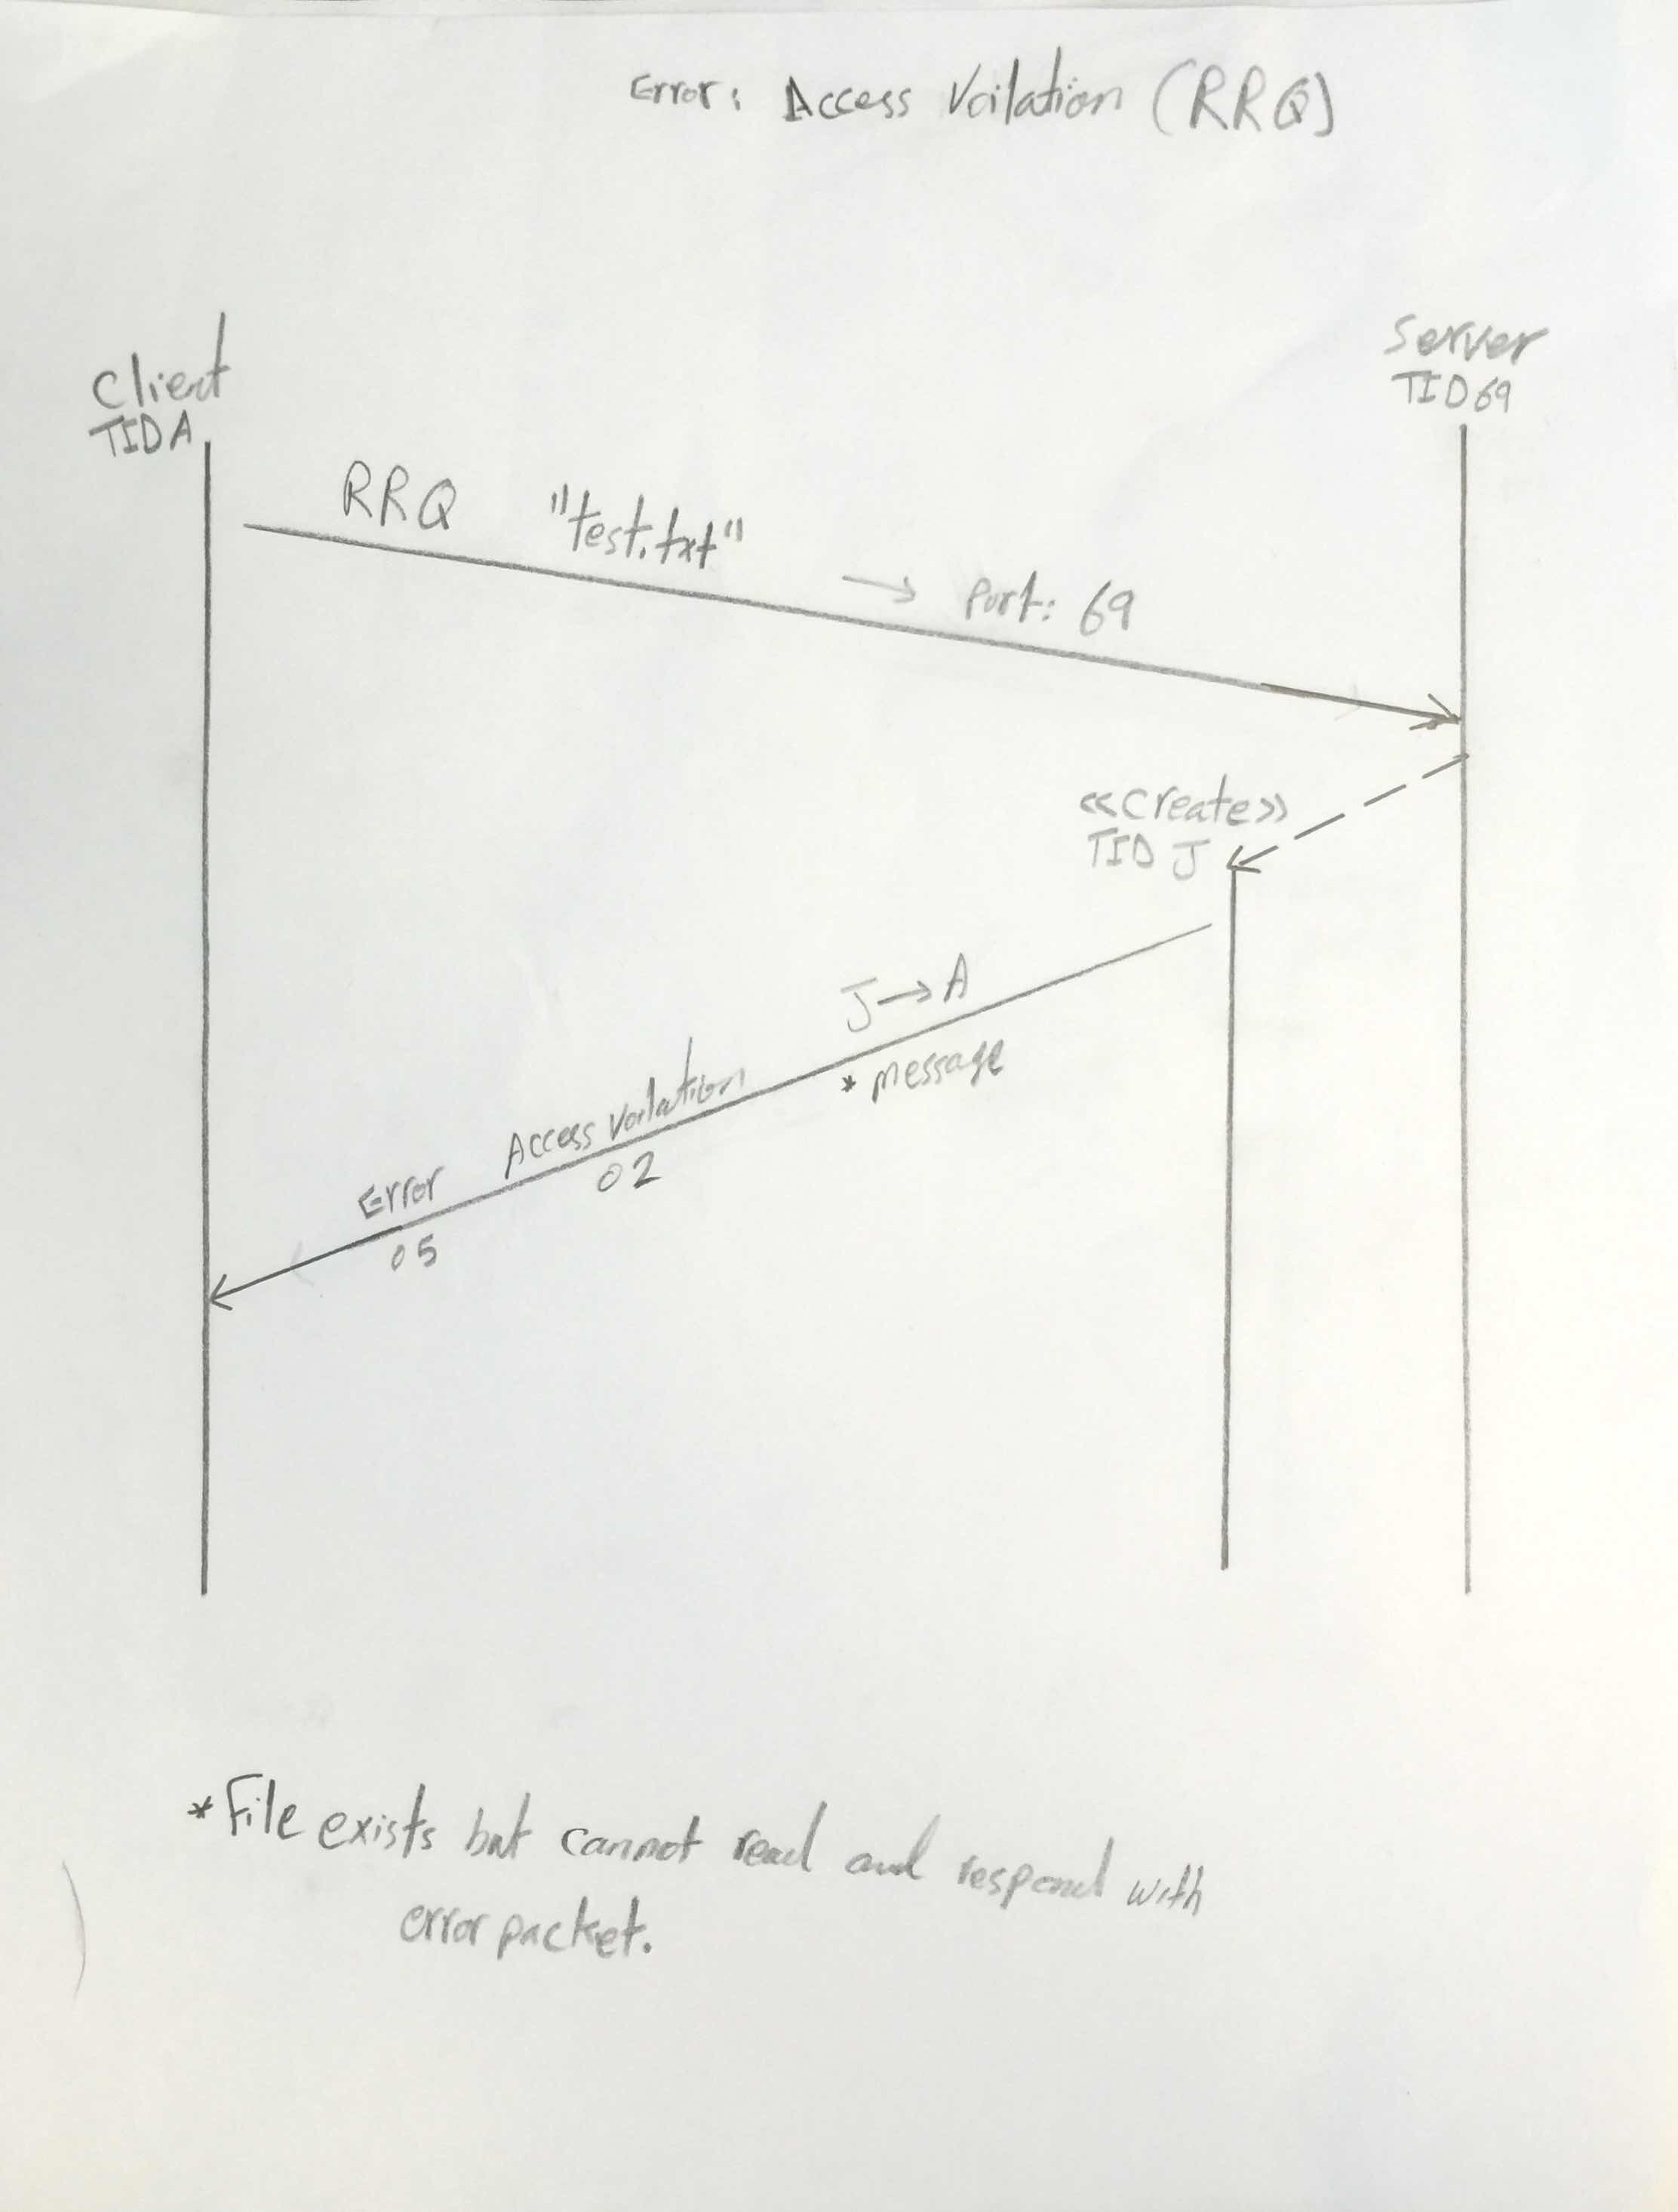 Error: Access Voilation (RRQ)
Server
TID 69
Client
TID A
RRQ "test.txt" → Port: 69
<<create>>
TID J
J→A
* message
Access Voilation
02
Error
05
*File exists but cannot read and respond with
error packet.